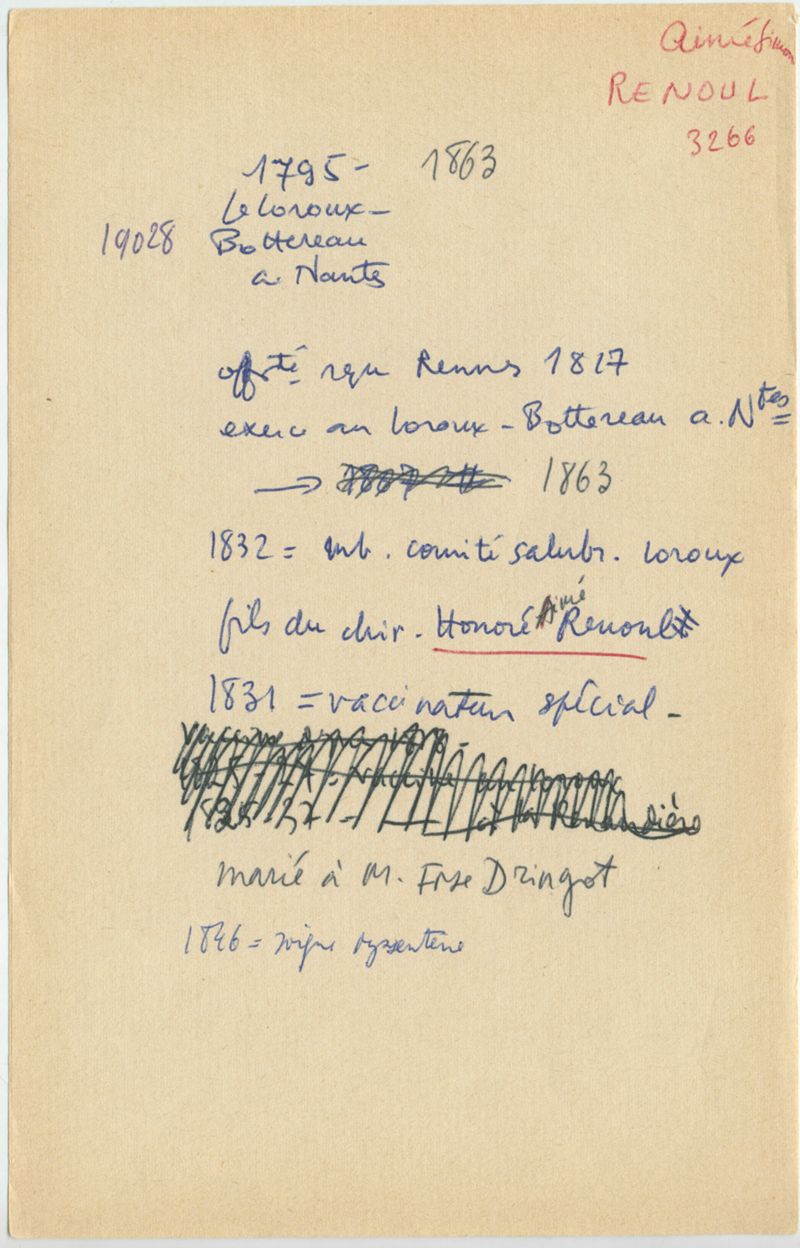 Aimé Simon
RENOUL
3266
1795 - 1863
Le Loroux -
19028 Bottereau
a. Nantes
off. sté reçu Rennes 1827
exerce au Loroux - Bottereau a. Ntes
→ 1863
1832 = mb. comité salubr. Loroux
fils du chir. Honoré Aimé Renoul
1831 = vaccinateur spécial -
marié à M. Frse Dringot
1846 = soigne dyssenterie